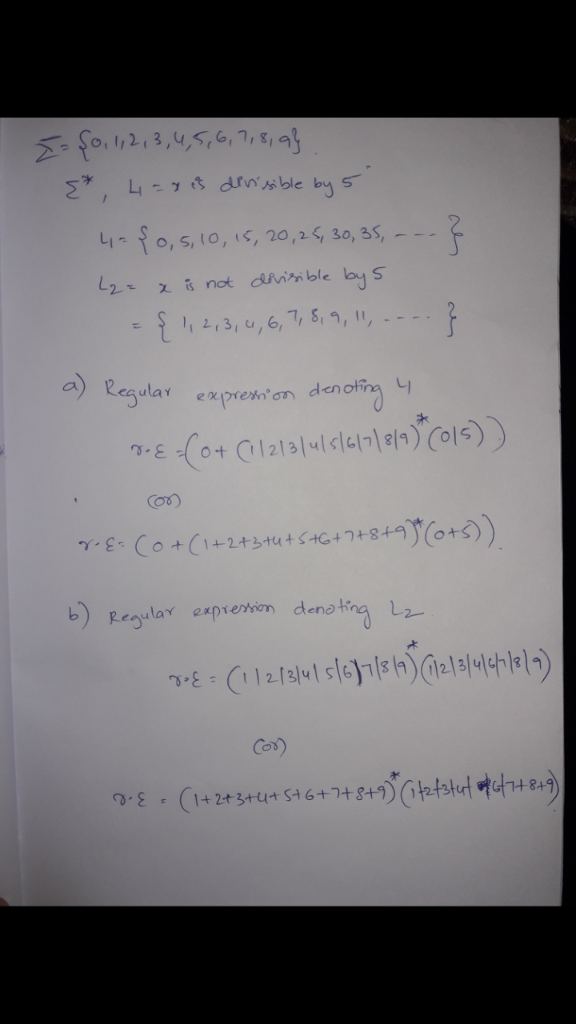 Σ = {0,1,2,3,4,5,6,7,8,9}.
Σ*, L1 = x is divisible by 5
L1 = {0, 5, 10, 15, 20, 25, 30, 35, ---- }
L2 = x is not divisible by 5
= { 1, 2, 3, 4, 6, 7, 8, 9, 11, ----- }
a) Regular expression denoting L1
r.E = (0 + (1|2|3|4|5|6|7|8|9)* (0|5))
(or)
r.E = (0 + (1+2+3+4+5+6+7+8+9)* (0+5)).
b) Regular expression denoting L2.
r.E = (1|2|3|4|5|6|7|8|9)* (1|2|3|4|6|7|8|9)
(or)
r.E = (1+2+3+4+5+6+7+8+9)* (1+2+3+4+6+7+8+9)